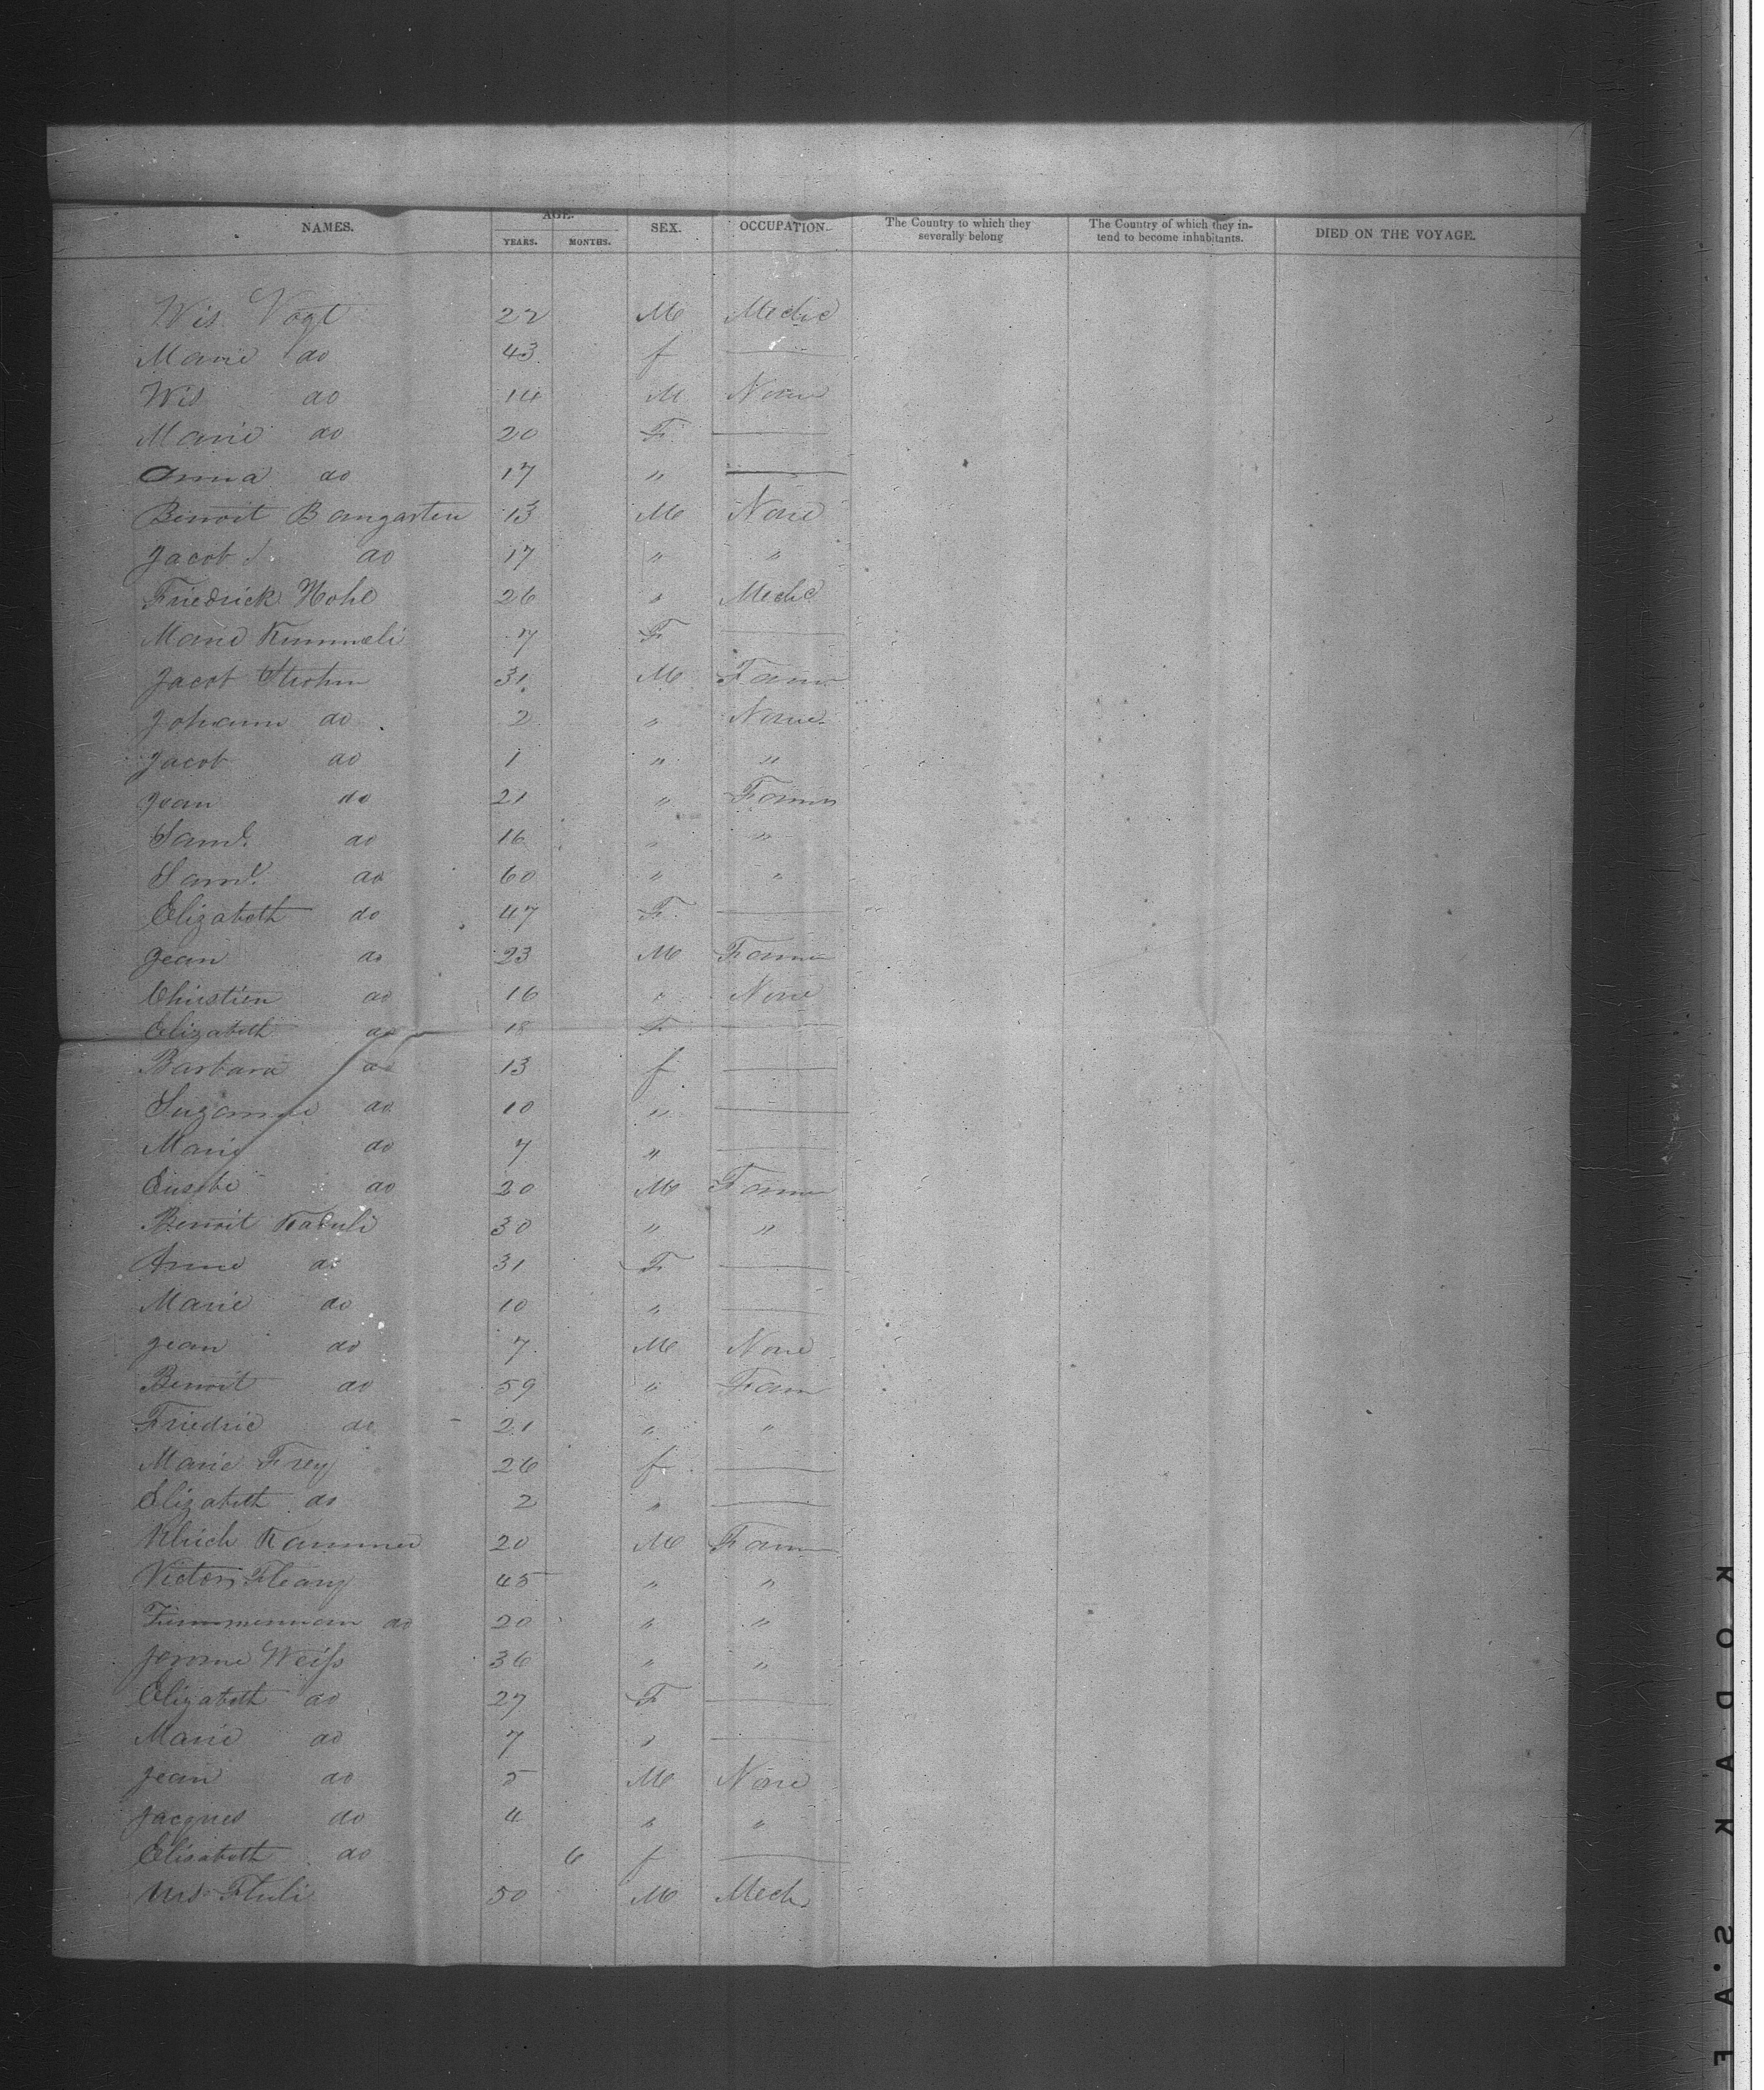 NAMES. AGE. SEX. OCCUPATION. The Country to which they severally belong The Country of which they intend to become inhabitants. DIED ON THE VOYAGE.
YEARS. MONTHS.
Wis Vogt 22 M Medic
Marie do 43 f
Wis do 14 M None
Marie do 20 F
Anna do 17 "
Benoit Bangarten 13 M None
Jacob do 17 " "
Friedrick Hohl 26 " Medic
Marie Kummeli 7 F
Jacob Strohm 31 M Farm
Johann do 2 " None
Jacob do 1 " "
Jean do 21 " Farmer
Saml. do 16 " "
Saml. do 60 " "
Elizabeth do 47 F
Jean do 23 M Farmer
Christien do 16 " None
Elizabeth do 18 F
Barbara do 13 f
Suzanne do 10 "
Marie do 7 "
Eusebi do 20 M Farmer
Benoit 30 " "
Anne do 31 F
Marie do 10 "
Jean do 7 M None
Benoit do 59 " Farm
Friedric do 21 " "
Marie Frey 26 f
Elizabeth do 2 "
Ulrich Kammer 20 M Farm
Victor 45 " "
Zimmermann do 20 " "
Jerome Weiss 36 " "
Elizabeth do 27 F
Marie do 7 "
Jean do 5 M None
Jacques do 4 " "
Elisabeth do 6 f
Urs Fluli 50 M Mech
KODAK S.A F